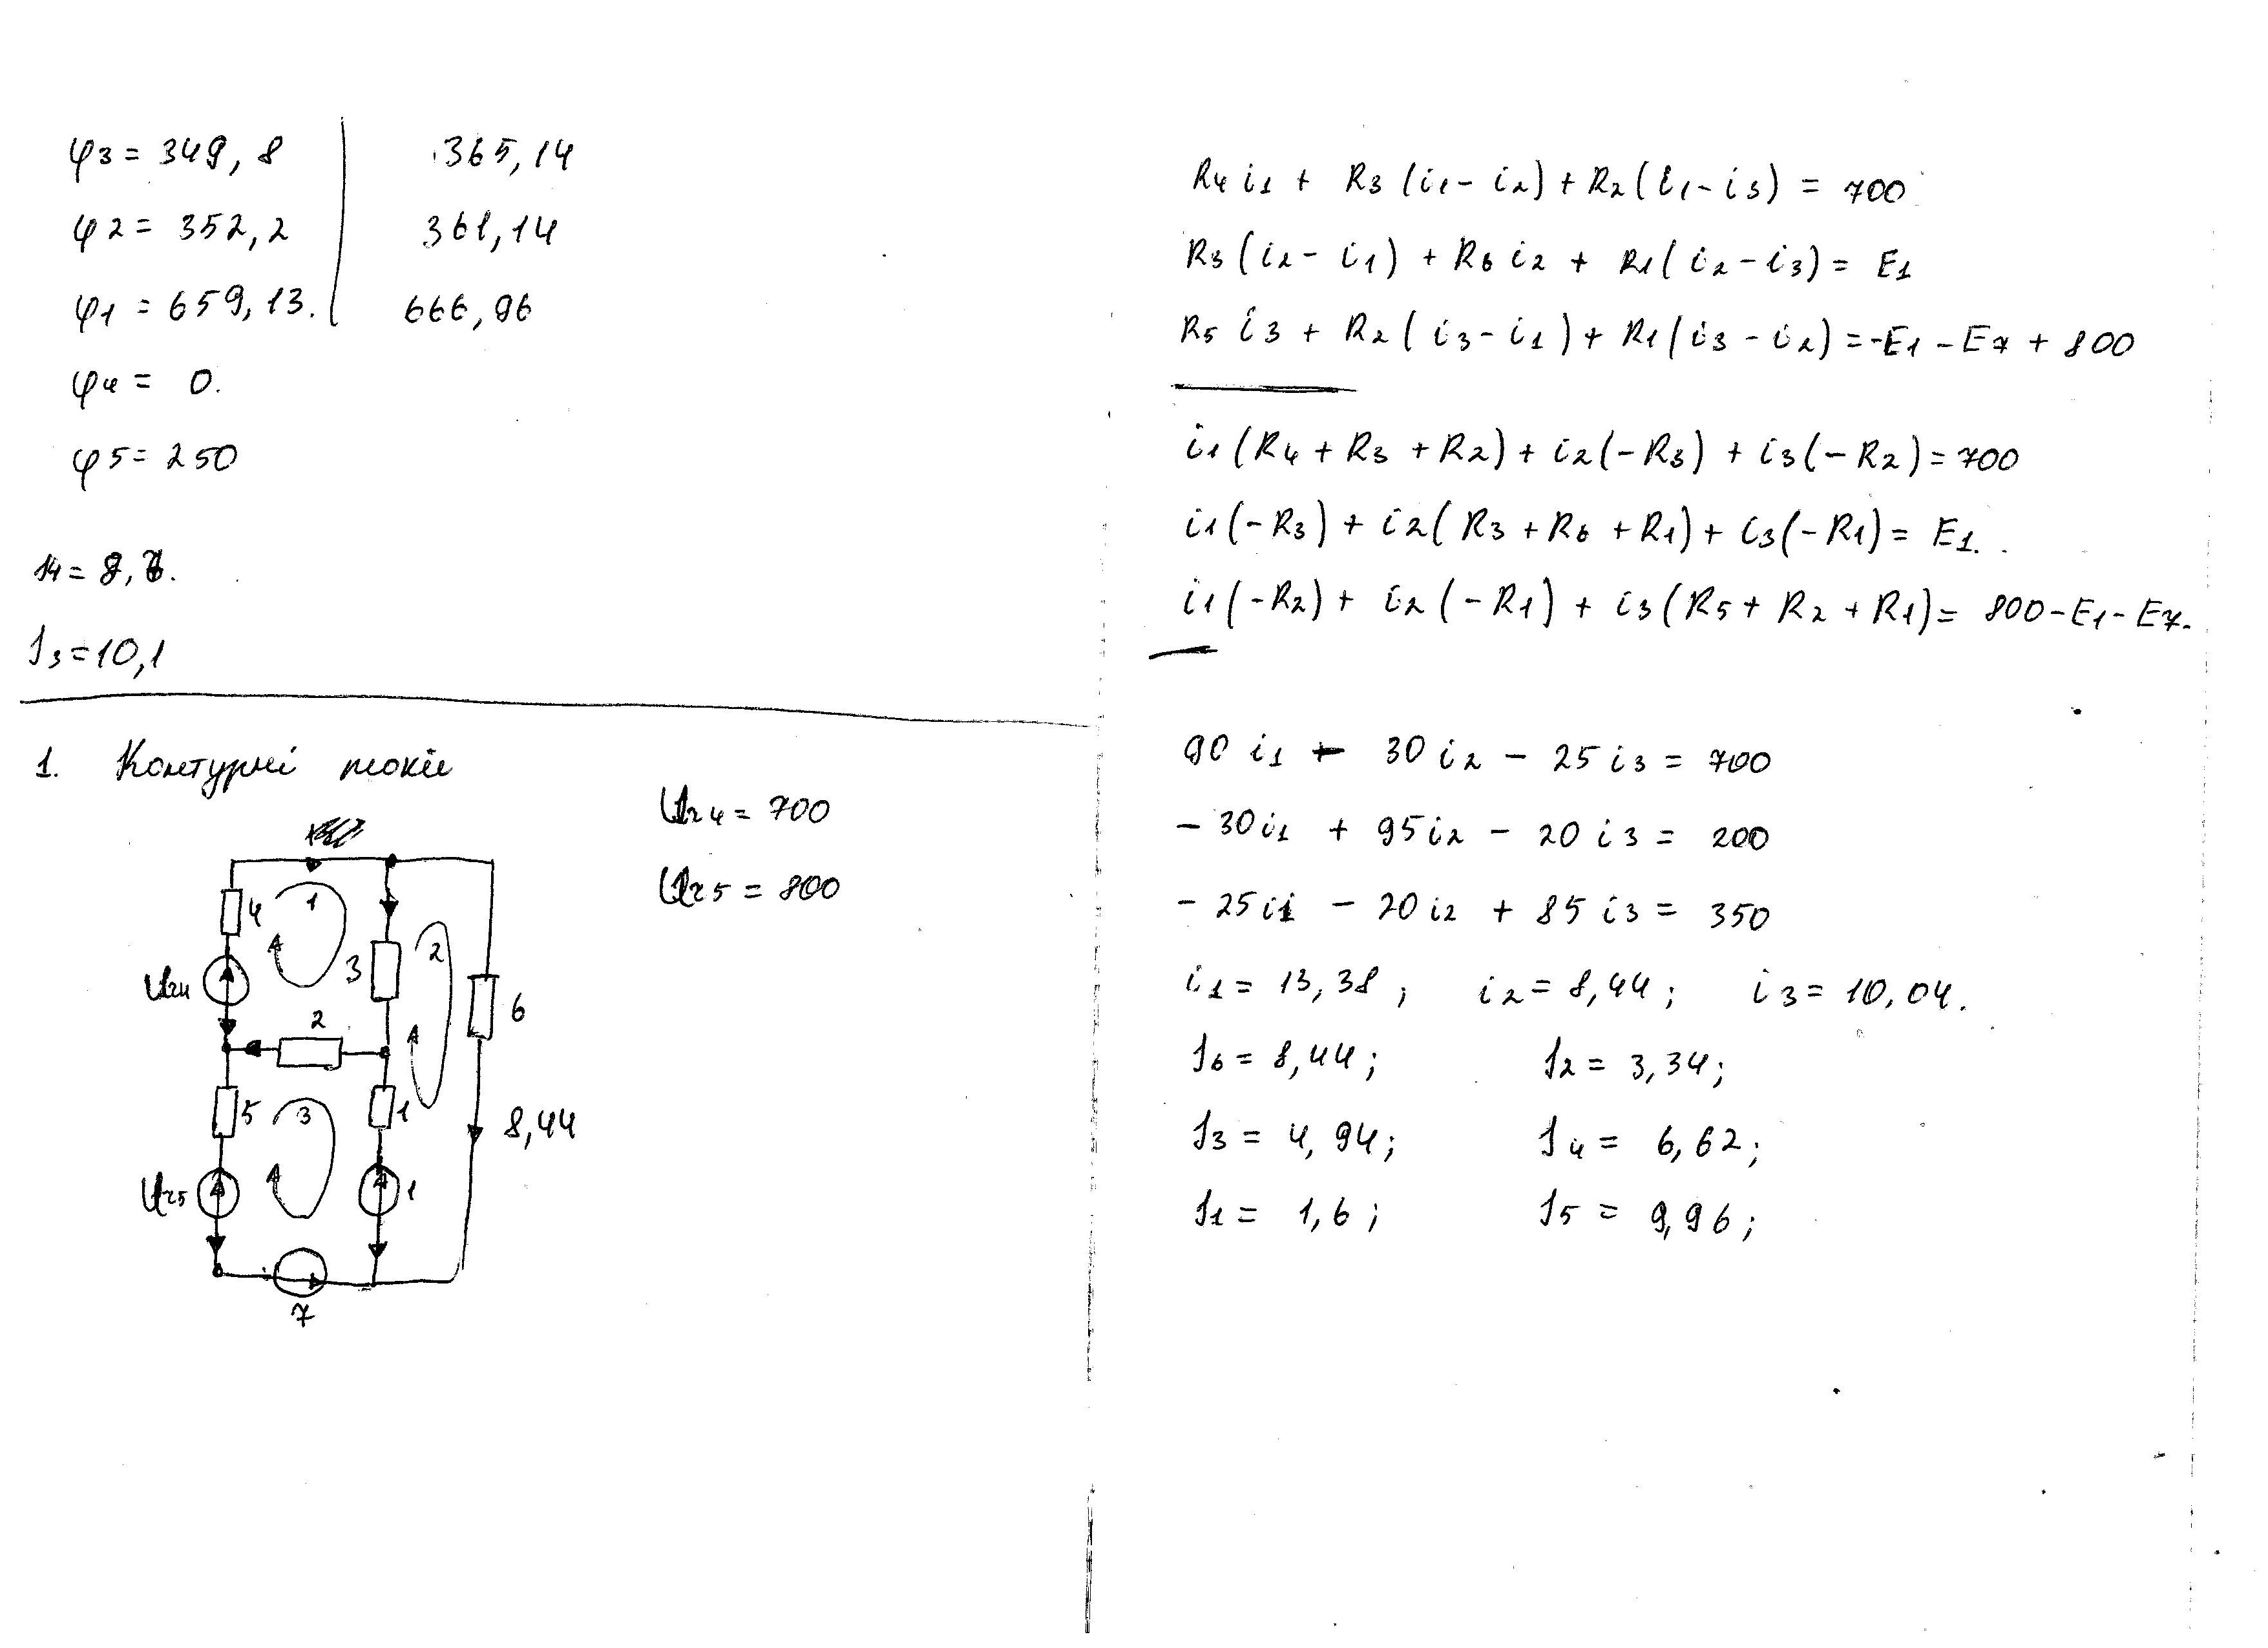 φ3 = 349,8 | 365,14
φ2 = 352,2 | 361,14
φ1 = 659,13. | 666,96
φ4 = 0.
φ5 = 250
I3 = 10,1
1. Контурні токи
Uг4 = 700
Uг5 = 800
4
1
3
2
6
Uг4
2
5
3
1
8,44
Uг5
1
7
R4 i1 + R3 (i1 - i2) + R2 (i1 - i3) = 700
R3 (i2 - i1) + R6 i2 + R1 (i2 - i3) = E1
R5 i3 + R2 (i3 - i1) + R1 (i3 - i2) = -E1 - E7 + 800
i1 (R4 + R3 + R2) + i2 (-R3) + i3 (-R2) = 700
i1 (-R3) + i2 (R3 + R6 + R1) + i3 (-R1) = E1.
i1 (-R2) + i2 (-R1) + i3 (R5 + R2 + R1) = 800 - E1 - E7.
90 i1 - 30 i2 - 25 i3 = 700
- 30 i1 + 95 i2 - 20 i3 = 200
- 25 i1 - 20 i2 + 85 i3 = 350
i1 = 13,38; i2 = 8,44; i3 = 10,04.
I6 = 8,44; I2 = 3,34;
I3 = 4,94; I4 = 6,62;
I1 = 1,6; I5 = 9,96;